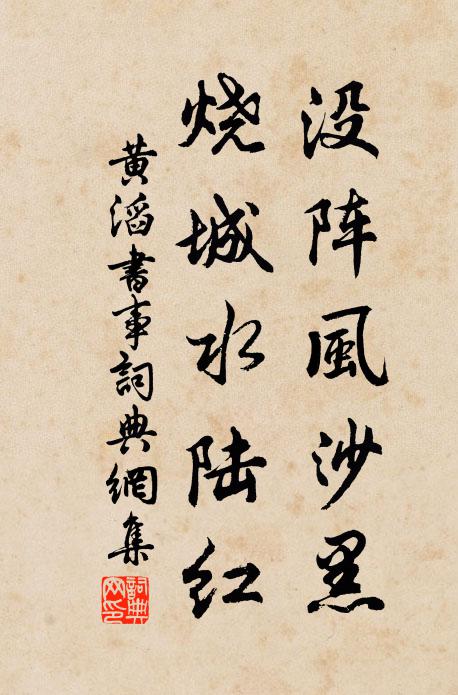 没阵風沙黑
烧城水陆红
黄滔書事詞典網集
詞典网印